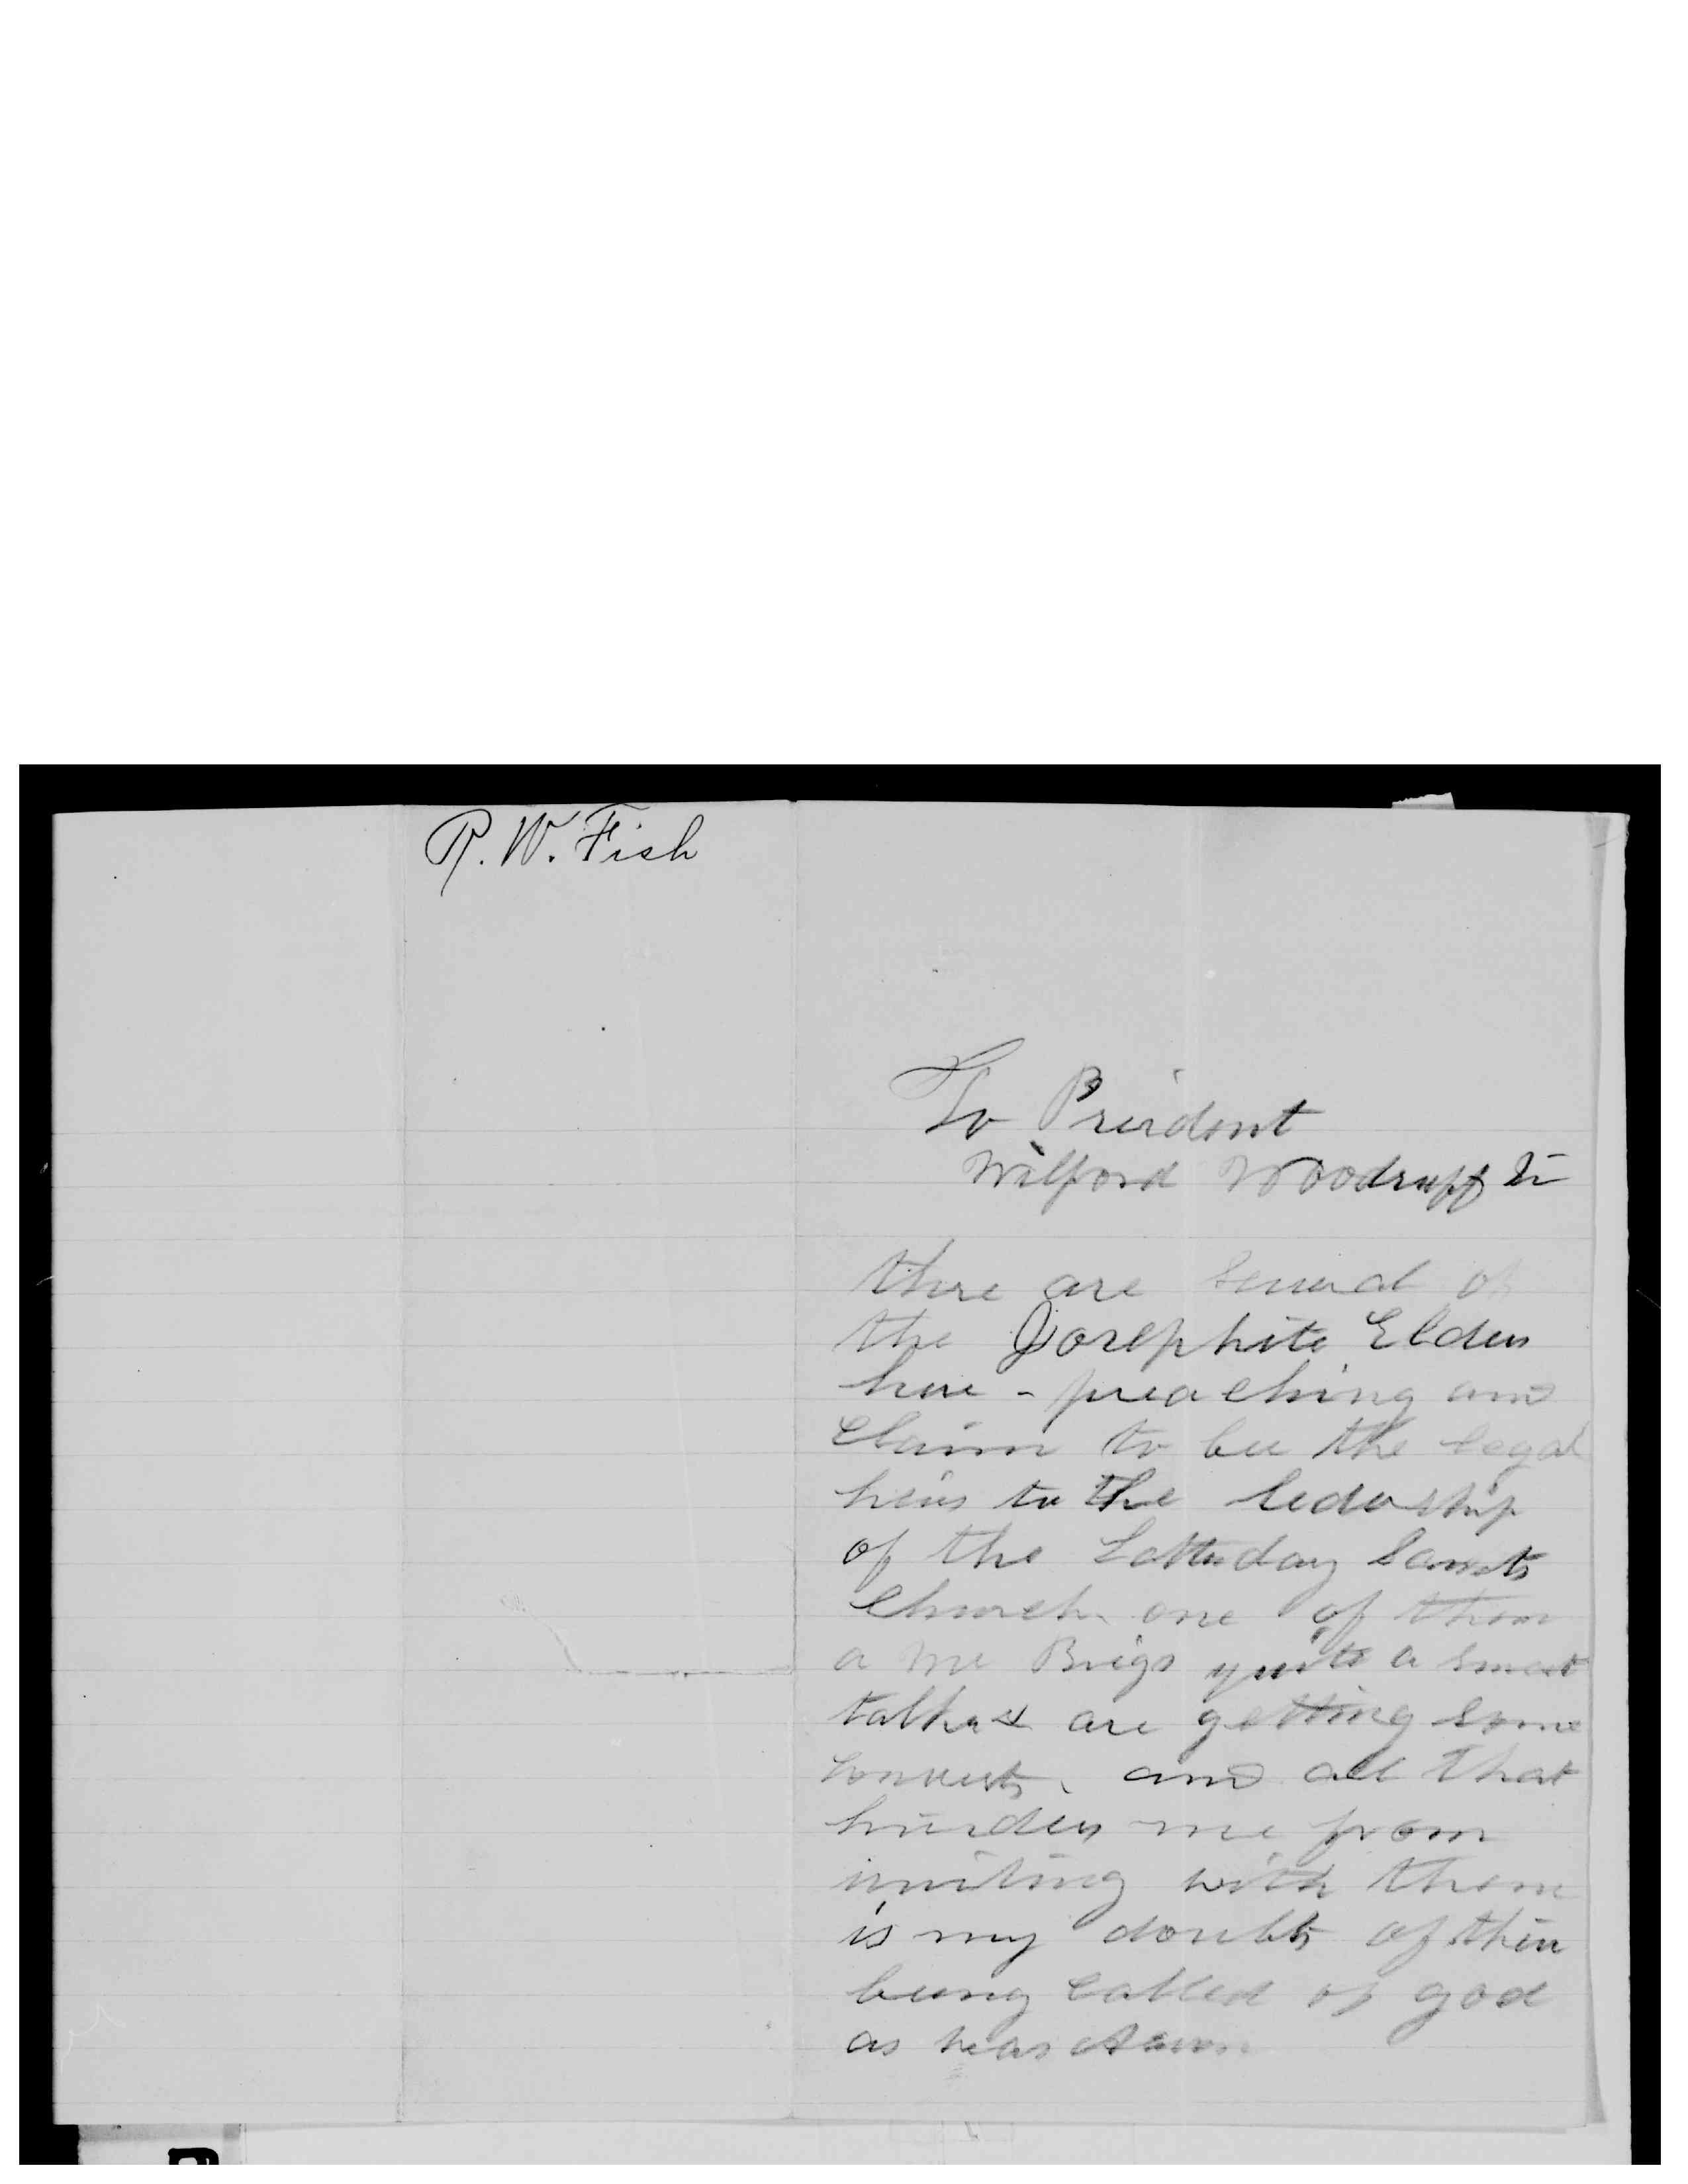 R. W. Fish
To President
Wilford Woodruff Sir
there are several of
the Josephite Elders
here - preaching and
Claim to bee the legal
heirs to the ledership
of the Latterday Saints
Church one of them
a Mr Brigs quite a smart
talker & are getting some
converts. and all that
hinders me from
uniting with them
is my doubts of their
being called of god
as was Aaron